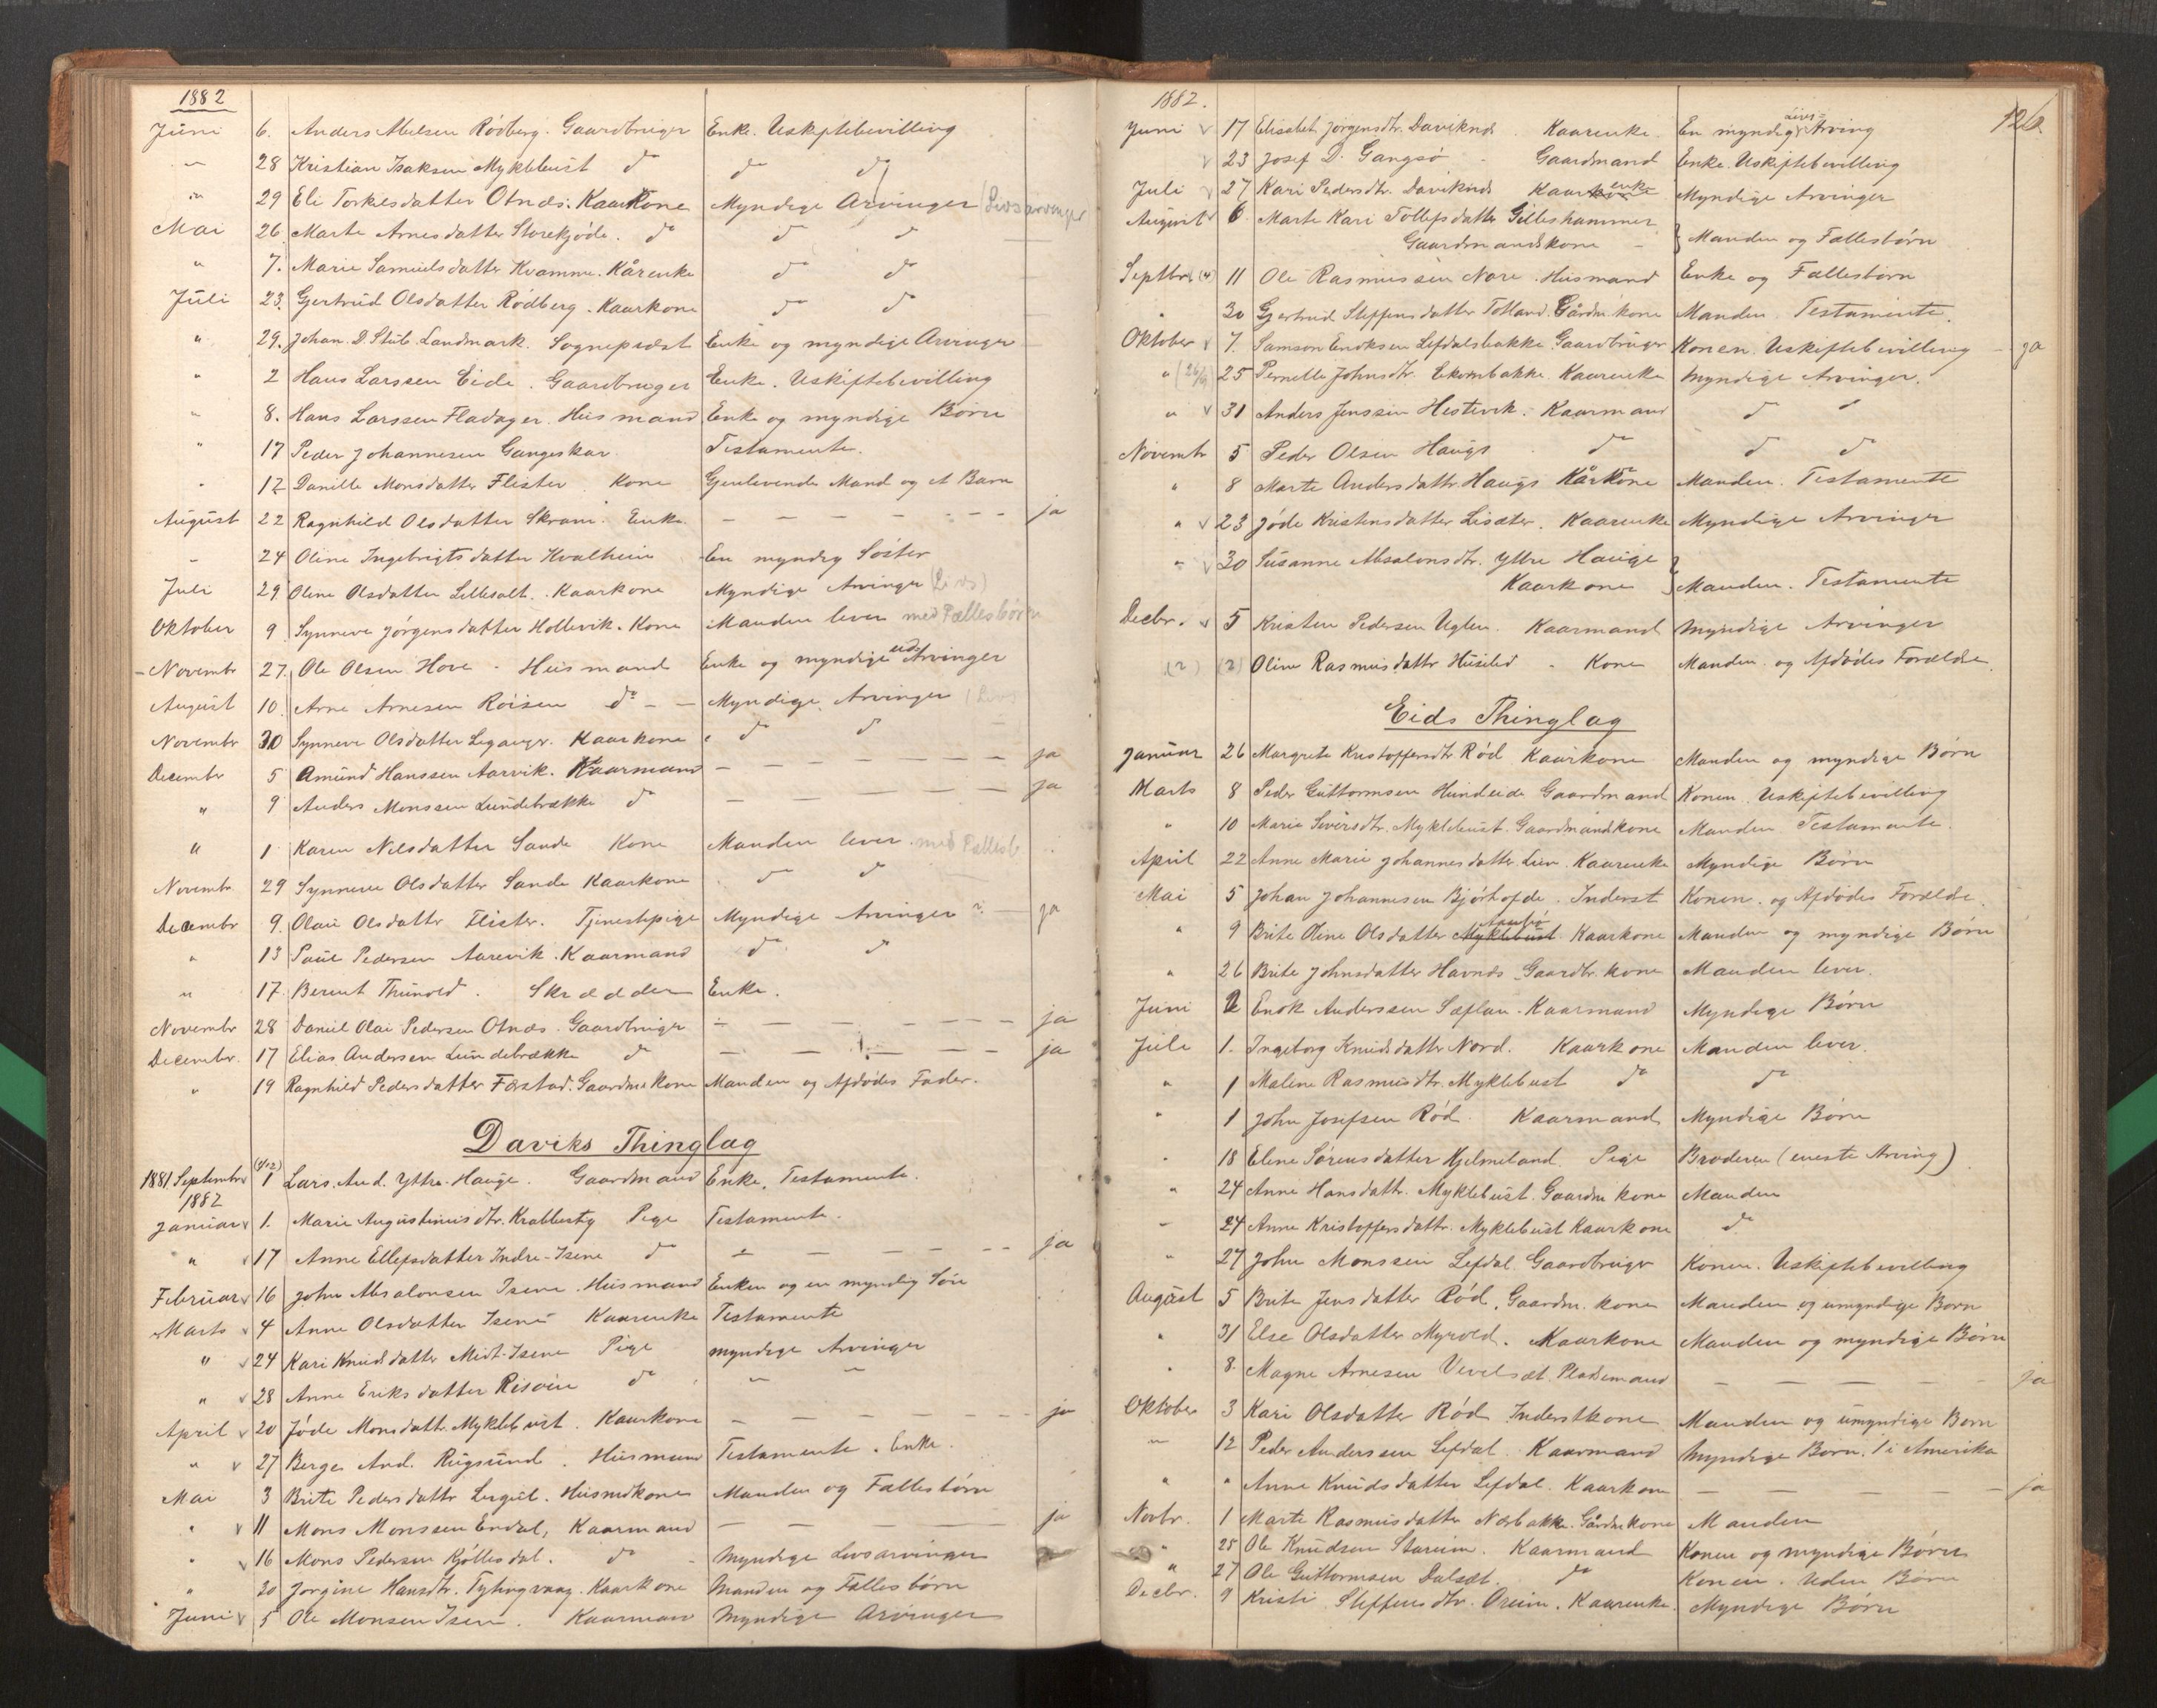 1882
Juni 6. Anders Abelsen Rødberg. Gaardbruger Enke. Uskiftebevilling
" 28 Kristian Isaksen Myklebust do do do
" 29 Eli Torkelsdatter Otnæs. Kaarkone Myndige Arvinger (Livsarvinger
Mai 26. Marte Arnesdatter Storekjøde. do do do
" 7. Marie Samuelsdatter Kvamme. Kårenke do do
Juli 23. Gjertrud Olsdatter Rødberg. Kaarkone do do
" 29. Johan D. Stub Landmark. Sognepræst Enke og myndige Arvinger
" 2 Hans Larssen Eide. Gaardbruger Enke. Uskiftebevilling
" 8. Hans Larssen Fladager. Husmand Enke og myndige Børn
" 17 Peder Johannesen Gangeskar. Testamente.
" 12 Danille Monsdatter Flister Kone Gjenlevende Mand og et Barn
August 22 Ragnhild Olsdatter Skram. Enke. – – – – – – ja
" 24 Oline Ingebrigtsdatter Hvalheim En myndig Søster
Juli 29 Oline Olsdatter Lillesalt. Kaarkone Myndige Arvinger (Livs)
Oktober 9 Synneve Jørgensdatter Hollevik. Kone Manden lever med Fællesbørn
- Novembr 27. Ole Olsen Hove. Husmand Enke og myndige Arvinger
August 10. Arne Arnesen Røisen do – – Myndige Arvinger (Livs)
Novembr 30 Synneve Olsdatter Legangr. Kaarkone do do
Decembr 5 Amund Hanssen Aarvik. Kaarmand – – – – – – ja
" 9 Anders Monssen Lundebrække do – – – – – – ja
" 1 Karen Nilsdatter Sande Kone Manden lever. med Fællesb
Novembr 29 Synneve Olsdatter Sande Kaarkone do do
Decembr 9. Olaie Olsdattr Flister. Tjenestepige Myndige Arvinger ? – ja
" 13 Paul Pedersen Aarevik. Kaarmand do do
" 17. Berent Thunold. Skrædder Enke.
Novembr 28 Daniel Olai Pedersen Otnæs. Gaardbruger – – – – – – ja
Decembr. 17 Elias Andersen Lundebrække do – – – – – – ja
" 19 Ragnhild Pedersdatter Førstad. Gaardm kone Manden og Afdødes Fader.
Daviks Thinglag
1881 Septembr (1/12) 1 Lars And. Yttre-Hauge. Gaardmand Enke. Testamente.
1882
Januar v 1. Marie Augustinusdtr. Krabbestig Pige Testamente.
" v 17 Anne Ellefsdatter Indre-Isene do – – – – – – ja
Februar v 16 John Absalonsen Isene. Husmand Enken og en myndig Søn
Marts v 4 Anne Olsdatter Isene Kaarenke Testamente
" v 24 Kari Knudsdatter Midt-Isene Pige myndige Arvinger
" v 28 Anne Eriksdatter Risøen do " "
April v 20 Jøde Monsdattr. Myklebust. Kaarkone – – – – – – ja
" v 27 Berge And. Rugsund. Husmand Testamente. Enke.
Mai 3 Brite Pedersdattr Husmdkone Manden og Fællesbørn
" v 11 Mons Monssen Endal, Kaarmand – – – – ja
" v 16 Mons Pedersen Kjøllesdal. do – Myndige Livsarvinger
" 20 Jorgine Hansdtr. Tytingvaag. Kaarkone Manden og Fællesbørn
Juni v 5 Ole Monsen Isene. Kaarmand Myndige Arvinger
1882.
126.
Juni v 17 Elisabet Jørgensdtr. Daviknæs. Kaarenke. En myndig Arving
v 23 Josef D. Gangsø – Gaardmand Enke. Uskiftebevilling
Juli v 27 Kari Pedersdtr. Daviknæs Kaarkone enke Myndige Arvinger
August v 6. Marte Kari Tollefsdatter Gilleshammer
Gaardmandskone – } Manden og Fællesbørn
Septbr. (4) 11 Ole Rasmussen Nore. Husmand Enke og Fællesbørn
" 30 Gjertrud Steffensdatter Totland. Gårdm. kone Manden. Testamente.
Oktober v 7. Samson Enoksen Lefdalsbakke. Gaardbruger Konen. Uskiftebevilling – ja
" (26/9) 25 Pernelle Johnsdtr. Ekornbakke. Kaarenke Myndige Arvinger.
" v 31 Anders Jenssen Hestevik. Kaarmand do do
Novembr 5 Peder Olsen Haugs do do do
" 8 Marte Andersdattr. Haugs Kårkone Manden. Testamente
" v 23 Jøde Kristensdatter Lisæter. Kaarenke Myndige Arvinger
" v 30 Susanne Absalonsdtr. Yttre Hauge
Kaarkone } Manden. Testamente
Decbr. v 5 Kristen Pedersen Uglen. Kaarmand Myndige Arvinger
(2) (2) Oline Rasmusdattr Husebø – Kone Manden og Afdødes Forældre.
Eids Thinglag
Januar 26 Margrete Kristoffersdtr Rød Kaarkone Manden og myndige Børn
Marts 8 Peder Guttormsen Hundeide Gaardmand Konen. Uskiftebevilling
" 10 Marie Siversdtr. Myklebust. Gaardmandskone Manden Testamente.
April 22 Anne Marie Johannesdatter Lien. Kaarenke Myndige Børn
Mai 5 Johan Johannesen Bjørhofde. Inderst Konen. og Afdødes Forældre.
" 9 Brite Oline Olsdatter Myklebust. Kaarkone Manden og myndige Børn
" 26 Brite Johnsdatter Havnæs Gaardbr. kone Manden lever.
Juni 2 Enok Anderssen Sæflan. Kaarmand Myndige Børn
Juli 1. Ingeborg Knudsdatter Nord. Kaarkone Manden lever.
" 1 Malene Rasmusdtr. Myklebust do do
" 1 John Josefsen Rød. Kaarmand Myndige Børn
" 18 Elene Sørensdatter Hjelmeland. Pige Broderen (eneste Arving)
" 24 Anne Hansdattr. Myklebust. Gaardm kone Manden
" 24 Anne Kristoffersdattr. Myklebust Kaarkone do
" 27 John Monssen Lefdal. Gaardbruger Konen. Uskiftebevilling
August 5 Brite Jensdatter Rød. Gaardm. kone Manden og umyndige Børn
" 31 Else Olsdatter Myrold. Kaarkone Manden og myndige Børn
" 8. Magne Arnesen Vevelsæt. Pladsemand – – – – – ja
Oktober 3 Kari Olsdatter Rød Inderstkone Manden og umyndige Børn
" 12 Peder Anderssen Lefdal. Kaarmand Myndige Børn. 1 i Amerika
" " Anne Knudsdatter Lefdal. Kaarkone – – – – – ja
Novbr. 1 Marte Rasmusdatter Nærbakke. Gårdm kone Manden
" 25 Ole Knudsen Stareim. Kaarmand Konen og myndige Børn
" 27 Ole Guttormsen Dalsæt. do Konen. Uden Børn
Decbr. 9 Kristi Steffensdtr. Oreim. Kaarenke. Myndige Børn